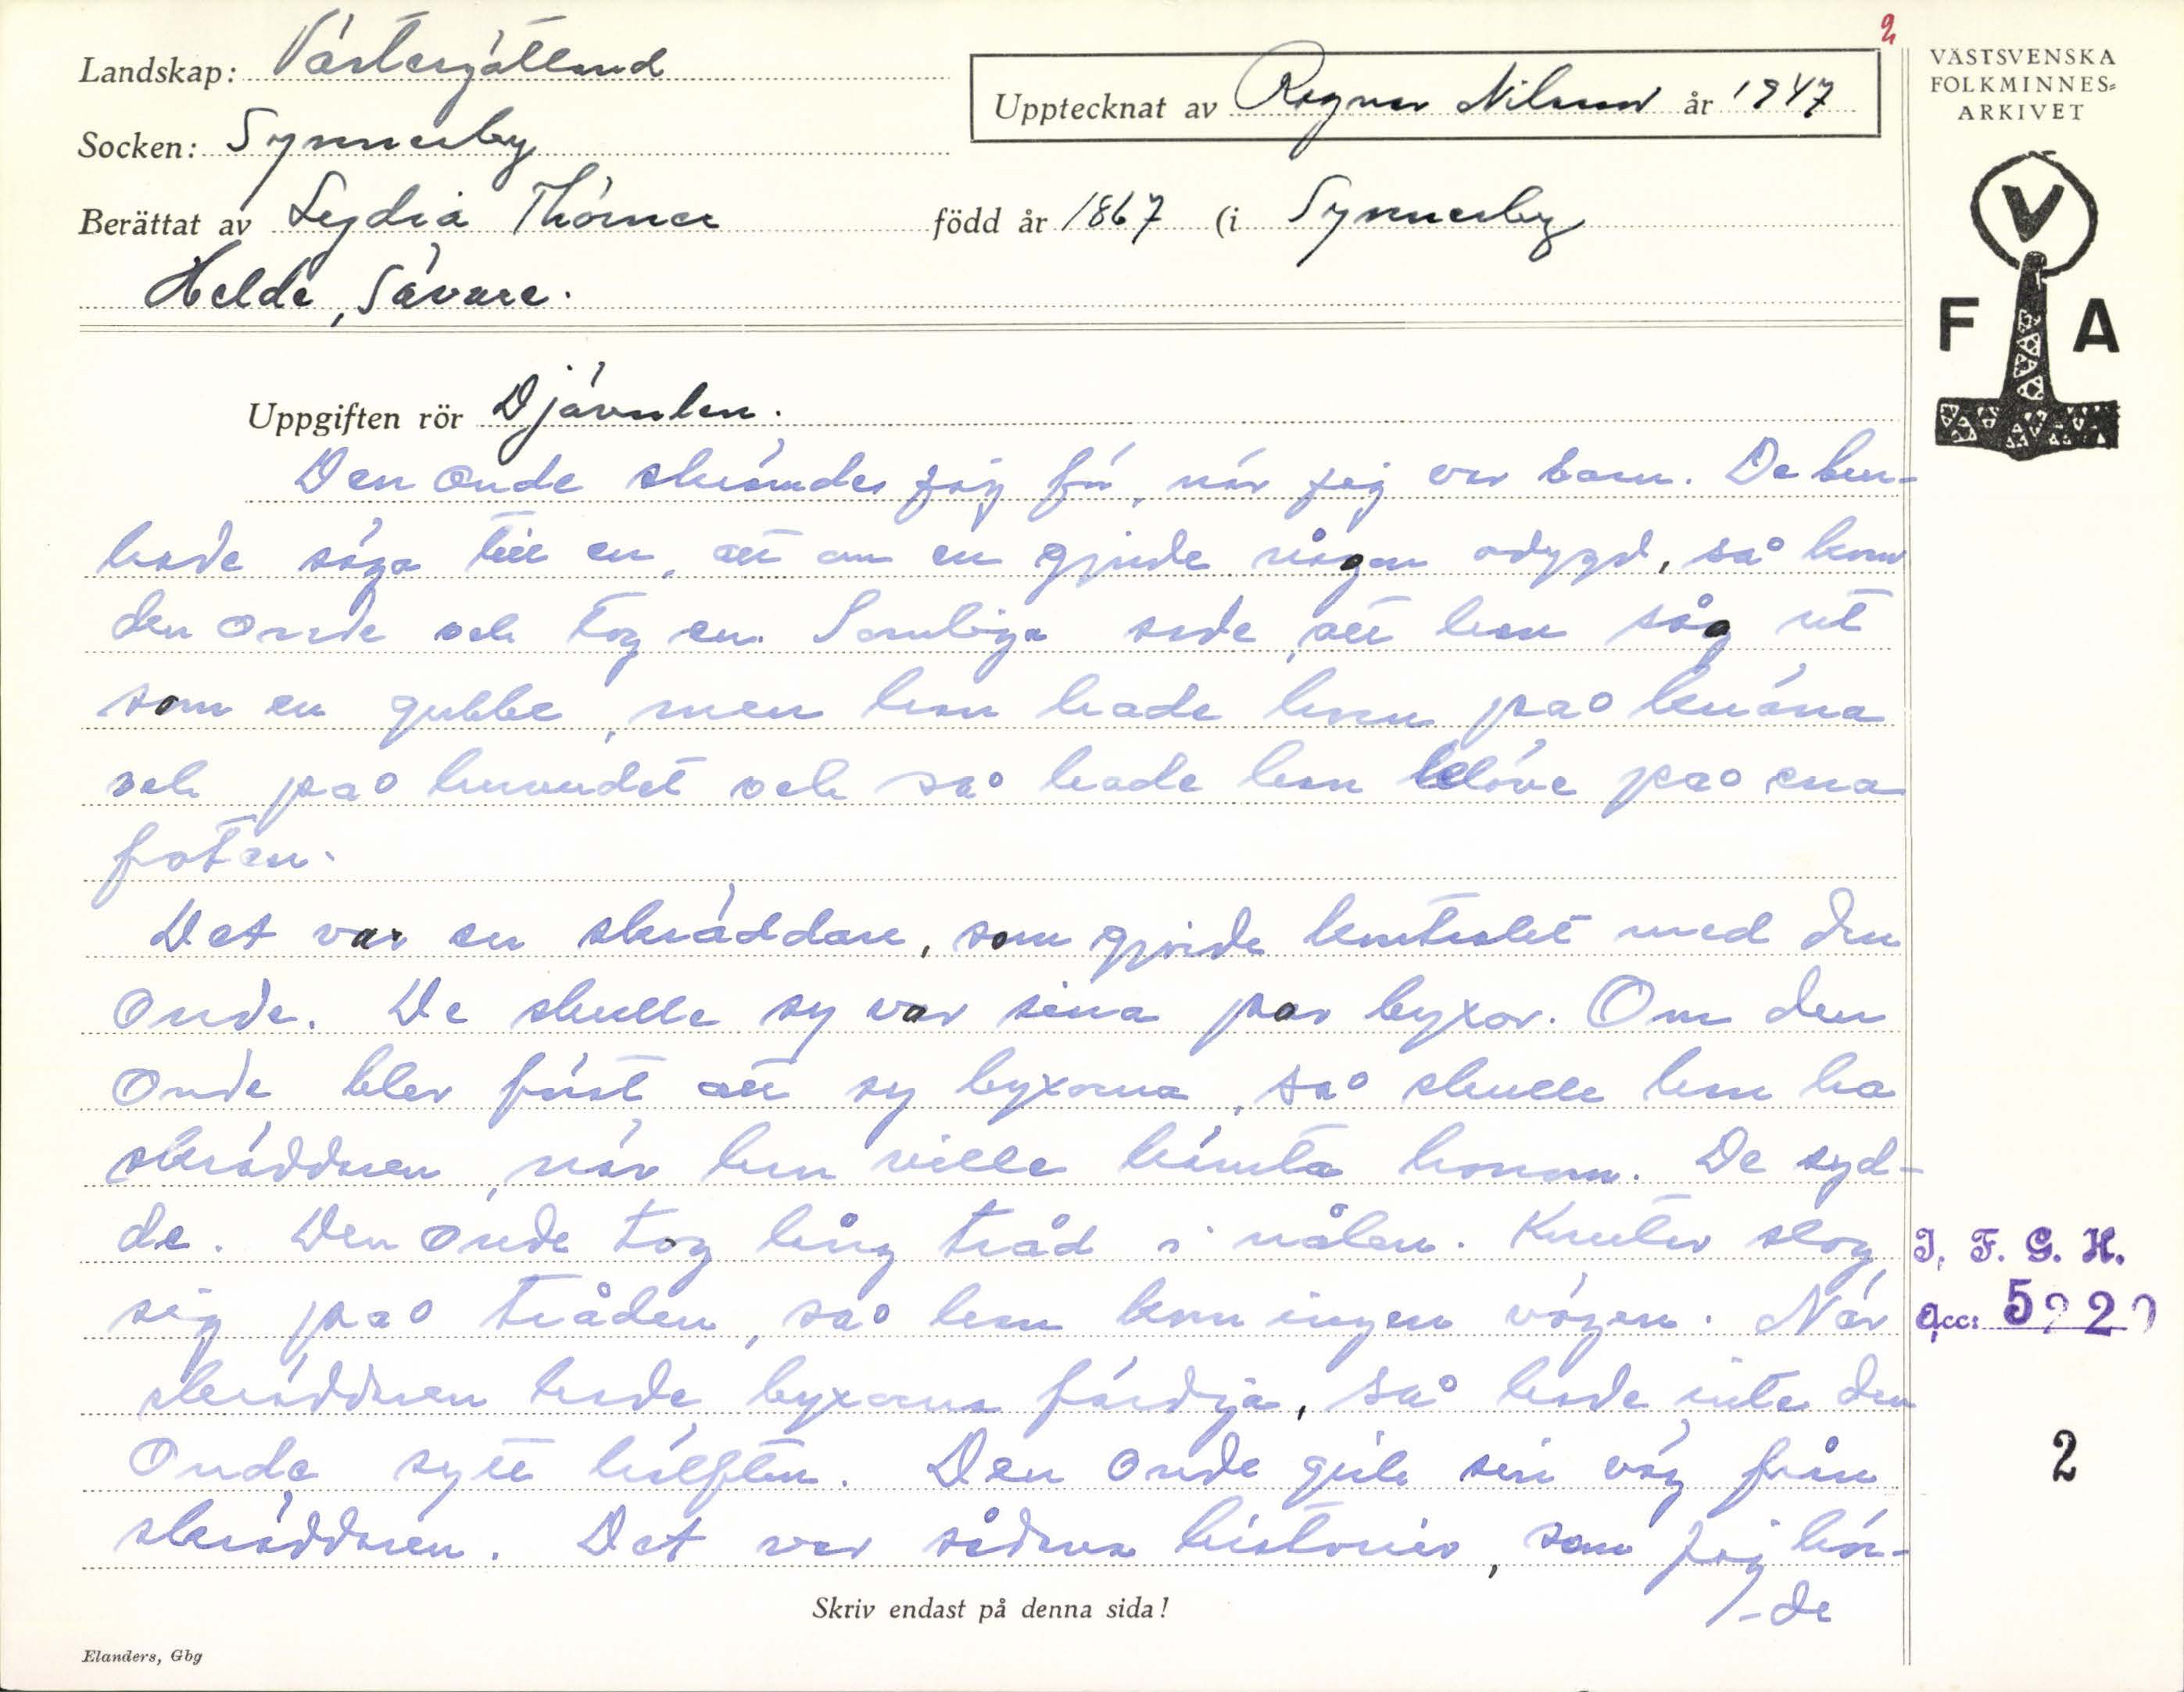 2
Landskap: Västergötland
Upptecknat av Ragnar Nilsson år 1947
VÄSTSVENSKA
FOLKMINNES-
ARKIVET
Socken: Synnerby
Berättat av Lydia Thörner född år 1867 (i Synnerby
Helde, Sävare.
V
F A
Uppgiften rör Djävulen.
Den Onde skrämdes jäj för, när jäj var barn. De bru-
kade säga till en, att om en gjorde någon odygd, så kom
den Onde och tog en. Somliga sade, att han såg ut
som en gubbe, men han hade horn på knäna
och på huvudet och så hade han klöve på ena
foten.
Det var en skräddare, som gjorde kontrakt med den
Onde. De skulle sy var sina par byxor. Om den
Onde blev först att sy byxorna, så skulle han ha
skräddaren, när han ville hämta honom. De syd-
de. Den Onde tog lång tråd i nålen. Knutar slog
sig på tråden, så han kom ingen vägen. När
skräddaren hade byxorna färdiga, så hade inte den
Onde sytt hälften. Den Onde gick sin väg från
skräddaren. Det var sådana historier, som jäj hör-
-de
I. F. G. H.
Acc: 5
2
Skriv endast på denna sida!
Elanders, Gbg